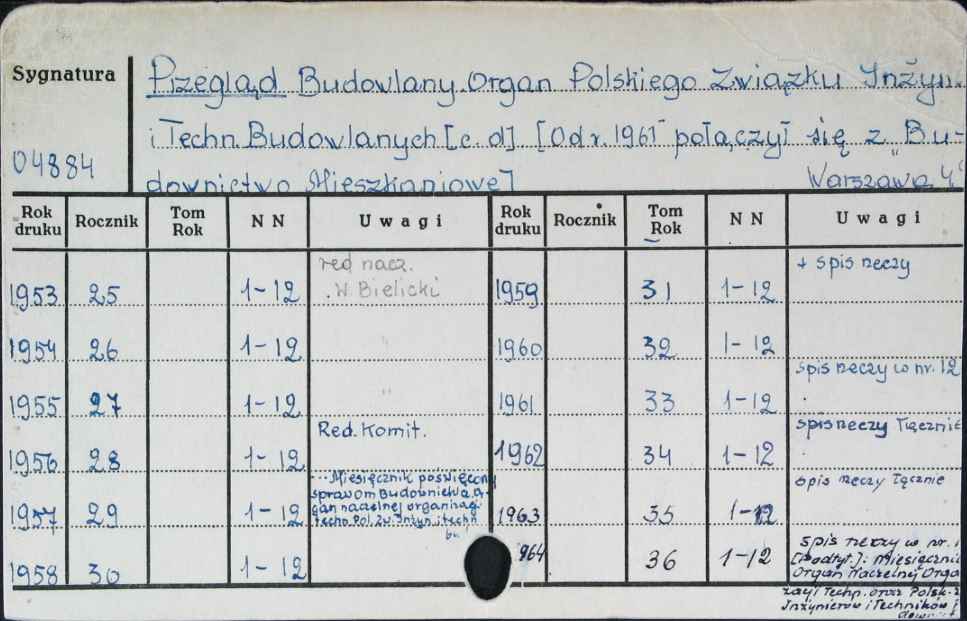 Sygnatura
Przegląd Budowlany. Organ Polskiego Związku Inżyn.
i Techn. Budowlanych [c. d] [Od r. 1961 połączył się z "Bu-
04884
downictwo Mieszkaniowe]
Warszawa 4"
Rok druku Rocznik Tom Rok N N Uwagi Rok druku Rocznik Tom Rok N N Uwagi
red nacz. + spis rzeczy
1953 25 1-12 W. Bielicki 1959 31 1-12
1954 26 1-12 1960 32 1-12
spis rzeczy w nr. 12
1955 27 1-12 1961 33 1-12
Red. Komit. spis rzeczy łącznie
1956 28 1-12 1962 34 1-12
...Miesięcznik poświęcony spis rzeczy łącznie
sprawom Budownictwa Or-
1957 29 1-12 gan naczelnej organizacji 1963 35 1-12
techn. Pol. Zw. Inżyn. i techn
bu
1958 30 1-12 964 36 1-12 spis rzeczy w nr. 1
[Podtyt.]: Miesięcznik
Organ Naczelnej Orga
zacji Techn. oraz Polsk. Z
Inżynierów i Techników